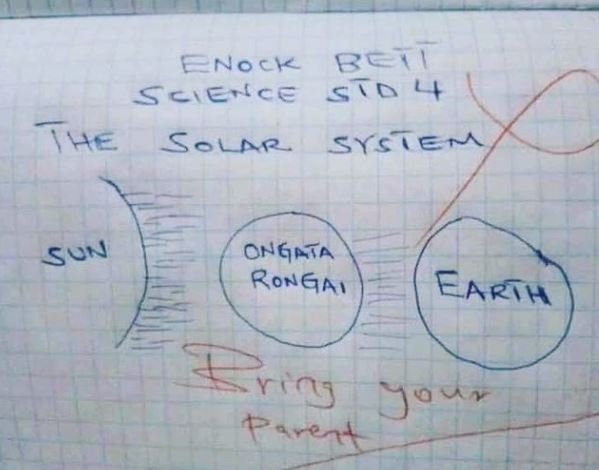 ENOCK BETT
SCIENCE STD 4
THE SOLAR SYSTEM
SUN
ONGATA
RONGAI
EARTH
Bring your
parent